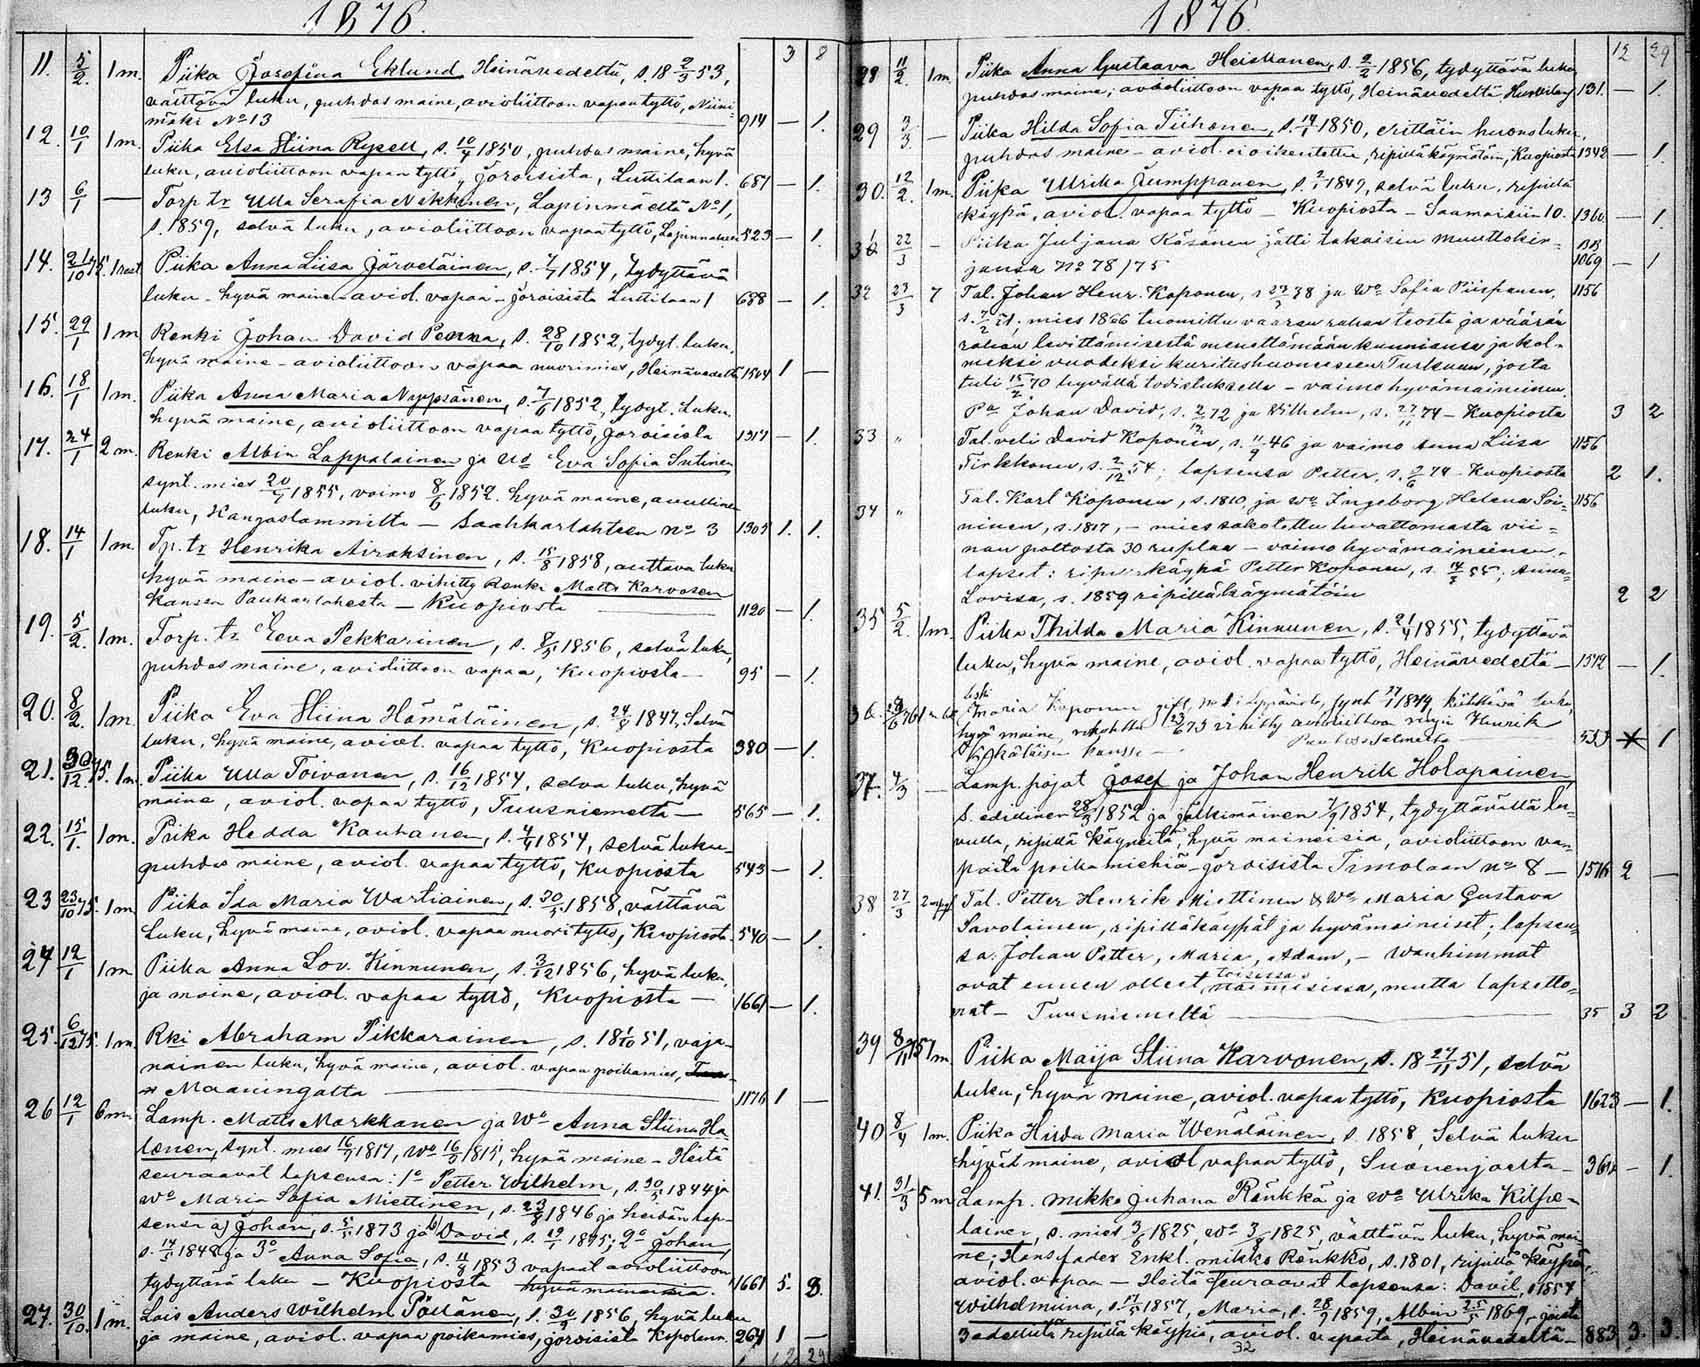 1876.
3 8
11. 5/2. 1 m. Piika Josefina Eklund, Heinävedeltä, s. 18 2/9 53,
välttävä luku, puhdas maine, avioliittoon vapaa tyttö, Niini-
mäki No 13 914 — 1.
12. 10/1 1 m. Piika Elsa Stiina Rysell, s. 10/4 1850, puhdas maine, hyvä
luku, avioliittoon vapaa tyttö, Joroisista, Luttilaan 1. 681 — 1.
13 6/1 — Torp. tr Ulla Serafia Nikkinen, Lapinmäeltä No 1,
s. 1859, selvä luku, avioliittoon vapaa tyttö, 523 — 1.
14. 21/10 75. Piika Anna Liisa Järveläinen, s. 7/7 1854, tydyttävä
luku - hyvä maine - aviol. vapaa - Joroisista Luttilaan 1 688 — 1.
15. 29/1 1 m Renki Johan David Peura, s. 28/10 1852, tydyt. luku,
hyvä maine - avioliittoon vapaa nuorimies, Heinävedeltä 1504 1 —
16. 18/1 1 m. Piika Anna Maria Nyyssönen, s. 7/6 1852, tydyt. luku
hyvä maine, avioliittoon vapaa tyttö, Joroisista 1317 — 1.
17. 24/1 2 m. Renki Albin Lappalainen ja Wo Eva Sofia Sutinen
synt. mies 20/4 1855, vaimo 8/6 1852. hyvä maine,
luku, Kangaslammilta — Saahkarlahteen No 3 1305 1. 1.
18. 14/1 1 m. Tp. tr Henrika Airaksinen, s. 15/8 1858, auttava luku
hyvä maine - aviol. vihitty Renki Matts Karvosen
kanssa Paukarlahesta — Kuopiosta 1120 — 1.
19. 5/2. 1 m. Torp. tr Eeva Pekkarinen, s. 8/5 1856, selvä luku,
puhdas maine, avioliittoon vapaa, Kuopiosta — 95 — 1.
20. 8/2. 1 m. Piika Eva Stiina Hämäläinen, s. 24/9 1847, Selvä
luku, hyvä maine, aviol. vapaa tyttö, Kuopiosta 380 — 1.
21. 30/12 75. 1 m. Piika Ulla Toivanen, s. 16/12 1854, selvä luku, hyvä
maine, aviol. vapaa tyttö, Tuusniemeltä — 565 — 1.
22. 15/1. 1 m. Piika Hedda Kauhanen, s. 4/4 1854, selvä luku
puhdas maine, aviol. vapaa tyttö, Kuopiosta 543 — 1.
23 23/10 75. 1 m Piika Ida Maria Wartiainen, s. 30/5 1858, välttävä
Luku, hyvä maine, aviol. vapaa nuori tyttö, Kuopiosta 540 — 1.
24 12/1 1 m Piika Anna Lov. Kinnunen, s. 3/12 1856, hyvä luku
ja maine, aviol. vapaa tyttö, Kuopiosta — 1661 — 1.
25. 6/12 75. 1 m. Rki Abraham Pikkarainen, s. 18 1/10 51, vaja-
nainen luku, hyvä maine, aviol. vapaa poikamies,
Maaningalta 1176 1 —
26 12/1 6 m. Lamp. Matts Markkanen ja Wo Anna Stiina Ha-
lonen, synt. mies 16/9 1817, Wo 16/5 1815, hyvä maine — Heitä
seuraavat lapsensa: 1o Petter Wilhelm, s. 30/5 1844 ja
Wo Maria Sofia Miettinen, s. 23/8 1846 ja heidän lap-
sensa a) Johan, s. 5/5 1873 ja b) David, s. 19/1 1875; 2o Johan,
s. 14/5 1848 ja 3o Anna Sofia, s. 11/8 1853 vapaat avioliittoon
tydyttävä luku — Kuopiosta hyvä mainessa. 1661 5. 3.
27. 30/10. 1 m. Lois Anders Wilhelm Pöllänen, s. 30/9 1856, hyvä luku
ja maine, aviol. vapaa poikamies, Joroisista 264 1 —
12 29
1876
12 29
28 11/2. 1 m. Piika Anna Gustaava Heiskanen, s. 2/2 1856, tydyttävä luku
puhdas maine, avioliittoon vapaa tyttö, Heinävedeltä 131. — 1.
29 3/3 — Piika Hilda Sofia Tiihonen, s. 14/1 1850, erittäin huono luku,
puhdas maine - aviol. ei oikeutettu, ripillä käymätöin, Kuopiosta 1342 — 1
30. 12/2. 1 m. Piika Ulrika Jumppanen, s. 2/1 1849, selvä luku, ripillä
käypä, aviol. vapaa tyttö — Kuopiosta — Saamaisiin 10. 1360. — 1.
31 22/3 — Piika Juljana Käsänen jätti takaisin muuttokir-
jansa No 78/75 1069 — 1
32 23/3 7 Tal. Johan Henr. Koponen, s 27/3 38 ja Wo Sofia Piispanen, 1156
s. 7/2 51, mies 1866 tuomittu väärän rahan teosta ja väärän
rahan levittämisestä menettämään kunniansa ja kol-
meksi vuodeksi kuritushuoneeseen Turkuun, josta
tuli 15/2 70 hyvällä todistuksella — vaimo hyvämaineinen.
Pa Johan David, s. 2/12 72 ja Wilhelm, s. 27/11 74 — Kuopiosta 3 2
33 " Tal. veli David Koponen, s. 11/9 46 ja vaimo Anna Liisa 1156
Tirkkonen, s. 2/12 54; lapsensa Petter, s. 2/6 74 - Kuopiosta 2 1.
34 " Tal. Karl Koponen, s. 1810, ja Wo Ingeborg Helena Soi- 1156
ninen, s. 1817, — mies sakotettu luvattomasta vii-
nan poltosta 30 ruplaa — vaimo hyvämaineinen.
lapset: ripillä käypä Petter Koponen, s. 14/5 55; Anna
Lovisa, s. 1859 ripillä käymätöin 2 2
35 5/2. 1 m. Piika Thilda Maria Kinnunen, s. 21/4 1855, tydyttävä
luku, hyvä maine, aviol. vapaa tyttö, Heinävedeltä — 1512 — 1.
36. Leski
Maria Koponen synt 17/ 1844, kiitettävä luku,
hyvä maine, vihitty avioliittoon Henrik
kanssa — 533 — 1
37. 4/3 — Lamp. pojat Josef ja Johan Henrik Holopainen,
s. edellinen 28/3 1852 ja jälkimäinen 7/9 1854, tydyttävällä lu-
vulla, ripillä käyneitä, hyvä maineisia, avioliittoon va-
paita poikamiehiä - Joroisista Timolaan No 8 — 1576 2 —
38 27/3 Tal. Petter Henrik Miettinen & Wo Maria Gustava
Savolainen, ripilläkäypät ja hyvämaineiset; lapsen-
sa: Johan Petter, Maria, Adam, — Wanhimmat
ovat ennen olleet toisessa naimisissa, mutta lapsetto-
mat — Tuusniemeltä 35 3 2
39 8/11 75 1 m. Piika Maija Stiina Karvonen, s. 18 27/11 51, selvä
luku, hyvä maine, aviol. vapaa tyttö, Kuopiosta 1623 — 1.
40 8/4 1 m. Piika Hilda Maria Wenäläinen, s. 1858, Selvä luku
hyvä maine, aviol vapaa tyttö, Suonenjoelta — 364 — 1.
41. 31/3 5 m Lamp. Mikko Juhana Ränkkä ja Wo Ulrika Kilpe-
läinen, s. mies 3/6 1825, Wo 3/8 1825, välttävä luku, hyvä mai-
ne; Hans fader Enkl. Mikko Ränkkö, s. 1801, ripillä käypä,
aviol. vapaa — Heitä seuraavat lapsensa: David, s 1854
Wilhelmiina, s. 17/5 1857, Maria, s. 28/9 1859, Albin 25/5 1869, joista
3 edellistä ripillä käypiä, aviol. vapaita, Heinävedeltä — 883 3. 3.
32